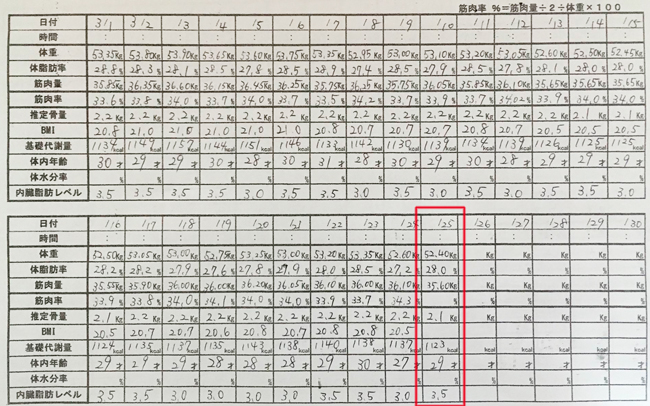 筋肉率 %=筋肉量÷2÷体重×100
日付 3/1 3/2 /3 /4 /5 /6 /7 /8 /9 /10 /11 /12 /13 /14 /15
時間 : : : : : : : : : : : : : : :
体重 53.35Kg 53.80Kg 53.90Kg 53.65Kg 53.60Kg 53.75Kg 53.35Kg 52.95Kg 53.00Kg 53.10Kg 53.20Kg 53.05Kg 52.60Kg 52.50Kg 52.45Kg
体脂肪率 28.8% 28.3% 28.1% 28.5% 27.8% 28.5% 28.9% 27.4% 28.5% 27.9% 28.5% 27.8% 28.1% 28.0% 28.0%
筋肉量 35.85Kg 36.35Kg 36.60Kg 36.15Kg 36.45Kg 36.25Kg 35.75Kg 36.25Kg 35.75Kg 36.05Kg 35.85Kg 36.10Kg 35.65Kg 35.65Kg 35.65Kg
筋肉率 33.6% 33.8% 34.0% 33.7% 34.0% 33.7% 33.5% 34.2% 33.7% 33.9% 33.7% 34.02% 33.9% 34.0% 34.0%
推定骨量 2.2Kg 2.2Kg 2.2Kg 2.2Kg 2.2Kg 2.2Kg 2.2Kg 2.2Kg 2.2Kg 2.2Kg 2.2Kg 2.2Kg 2.2Kg 2.1Kg 2.1Kg
BMI 20.8 21.0 21.0 21.0 21.0 21.0 20.8 20.7 20.7 20.7 20.8 20.7 20.5 20.5 20.5
基礎代謝量 1134kcal 1149kcal 1157kcal 1144kcal 1151kcal 1146kcal 1133kcal 1142kcal 1130kcal 1139kcal 1134kcal 1139kcal 1126kcal 1125kcal 1125kcal
体内年齢 30才 29才 29才 30才 28才 30才 31才 28才 30才 29才 30才 28才 29才 29才 29才
体水分率 % % % % % % % % % % % % % % %
内臓脂肪レベル 3.5 3.5 3.5 3.5 3.0 3.5 3.5 3.0 3.5 3.0 3.5 3.0 3.5 3.5 3.0
日付 /16 /17 /18 /19 /20 /21 /22 /23 /24 /25 /26 /27 /28 /29 /30
時間 : : : : : : : : : : : : : : :
体重 52.50Kg 53.05Kg 53.00Kg 52.75Kg 53.25Kg 53.00Kg 53.20Kg 53.35Kg 52.60Kg 52.40Kg Kg Kg Kg Kg Kg
体脂肪率 28.2% 28.2% 27.9% 27.6% 27.8% 27.9% 28.0% 28.5% 27.2% 28.0% % % % % %
筋肉量 35.55Kg 35.90Kg 36.00Kg 36.00Kg 36.20Kg 36.05Kg 36.10Kg 36.00Kg 36.10Kg 35.60Kg Kg Kg Kg Kg Kg
筋肉率 33.9% 33.8% 34.0% 34.1% 34.0% 34.0% 33.9% 33.7% 34.3% % % % % % %
推定骨量 2.1Kg 2.2Kg 2.2Kg 2.2Kg 2.2Kg 2.2Kg 2.2Kg 2.2Kg 2.2Kg 2.1Kg Kg Kg Kg Kg Kg
BMI 20.5 20.7 20.7 20.6 20.8 20.7 20.8 20.8 20.5
基礎代謝量 1124kcal 1135kcal 1137kcal 1135kcal 1143kcal 1138kcal 1140kcal 1138kcal 1137kcal 1123kcal kcal kcal kcal kcal kcal
体内年齢 29才 29才 29才 28才 28才 28才 29才 30才 27才 29才 才 才 才 才 才
体水分率 % % % % % % % % % % % % % % %
内臓脂肪レベル 3.5 3.5 3.0 3.0 3.0 3.0 3.5 3.5 3.0 3.5